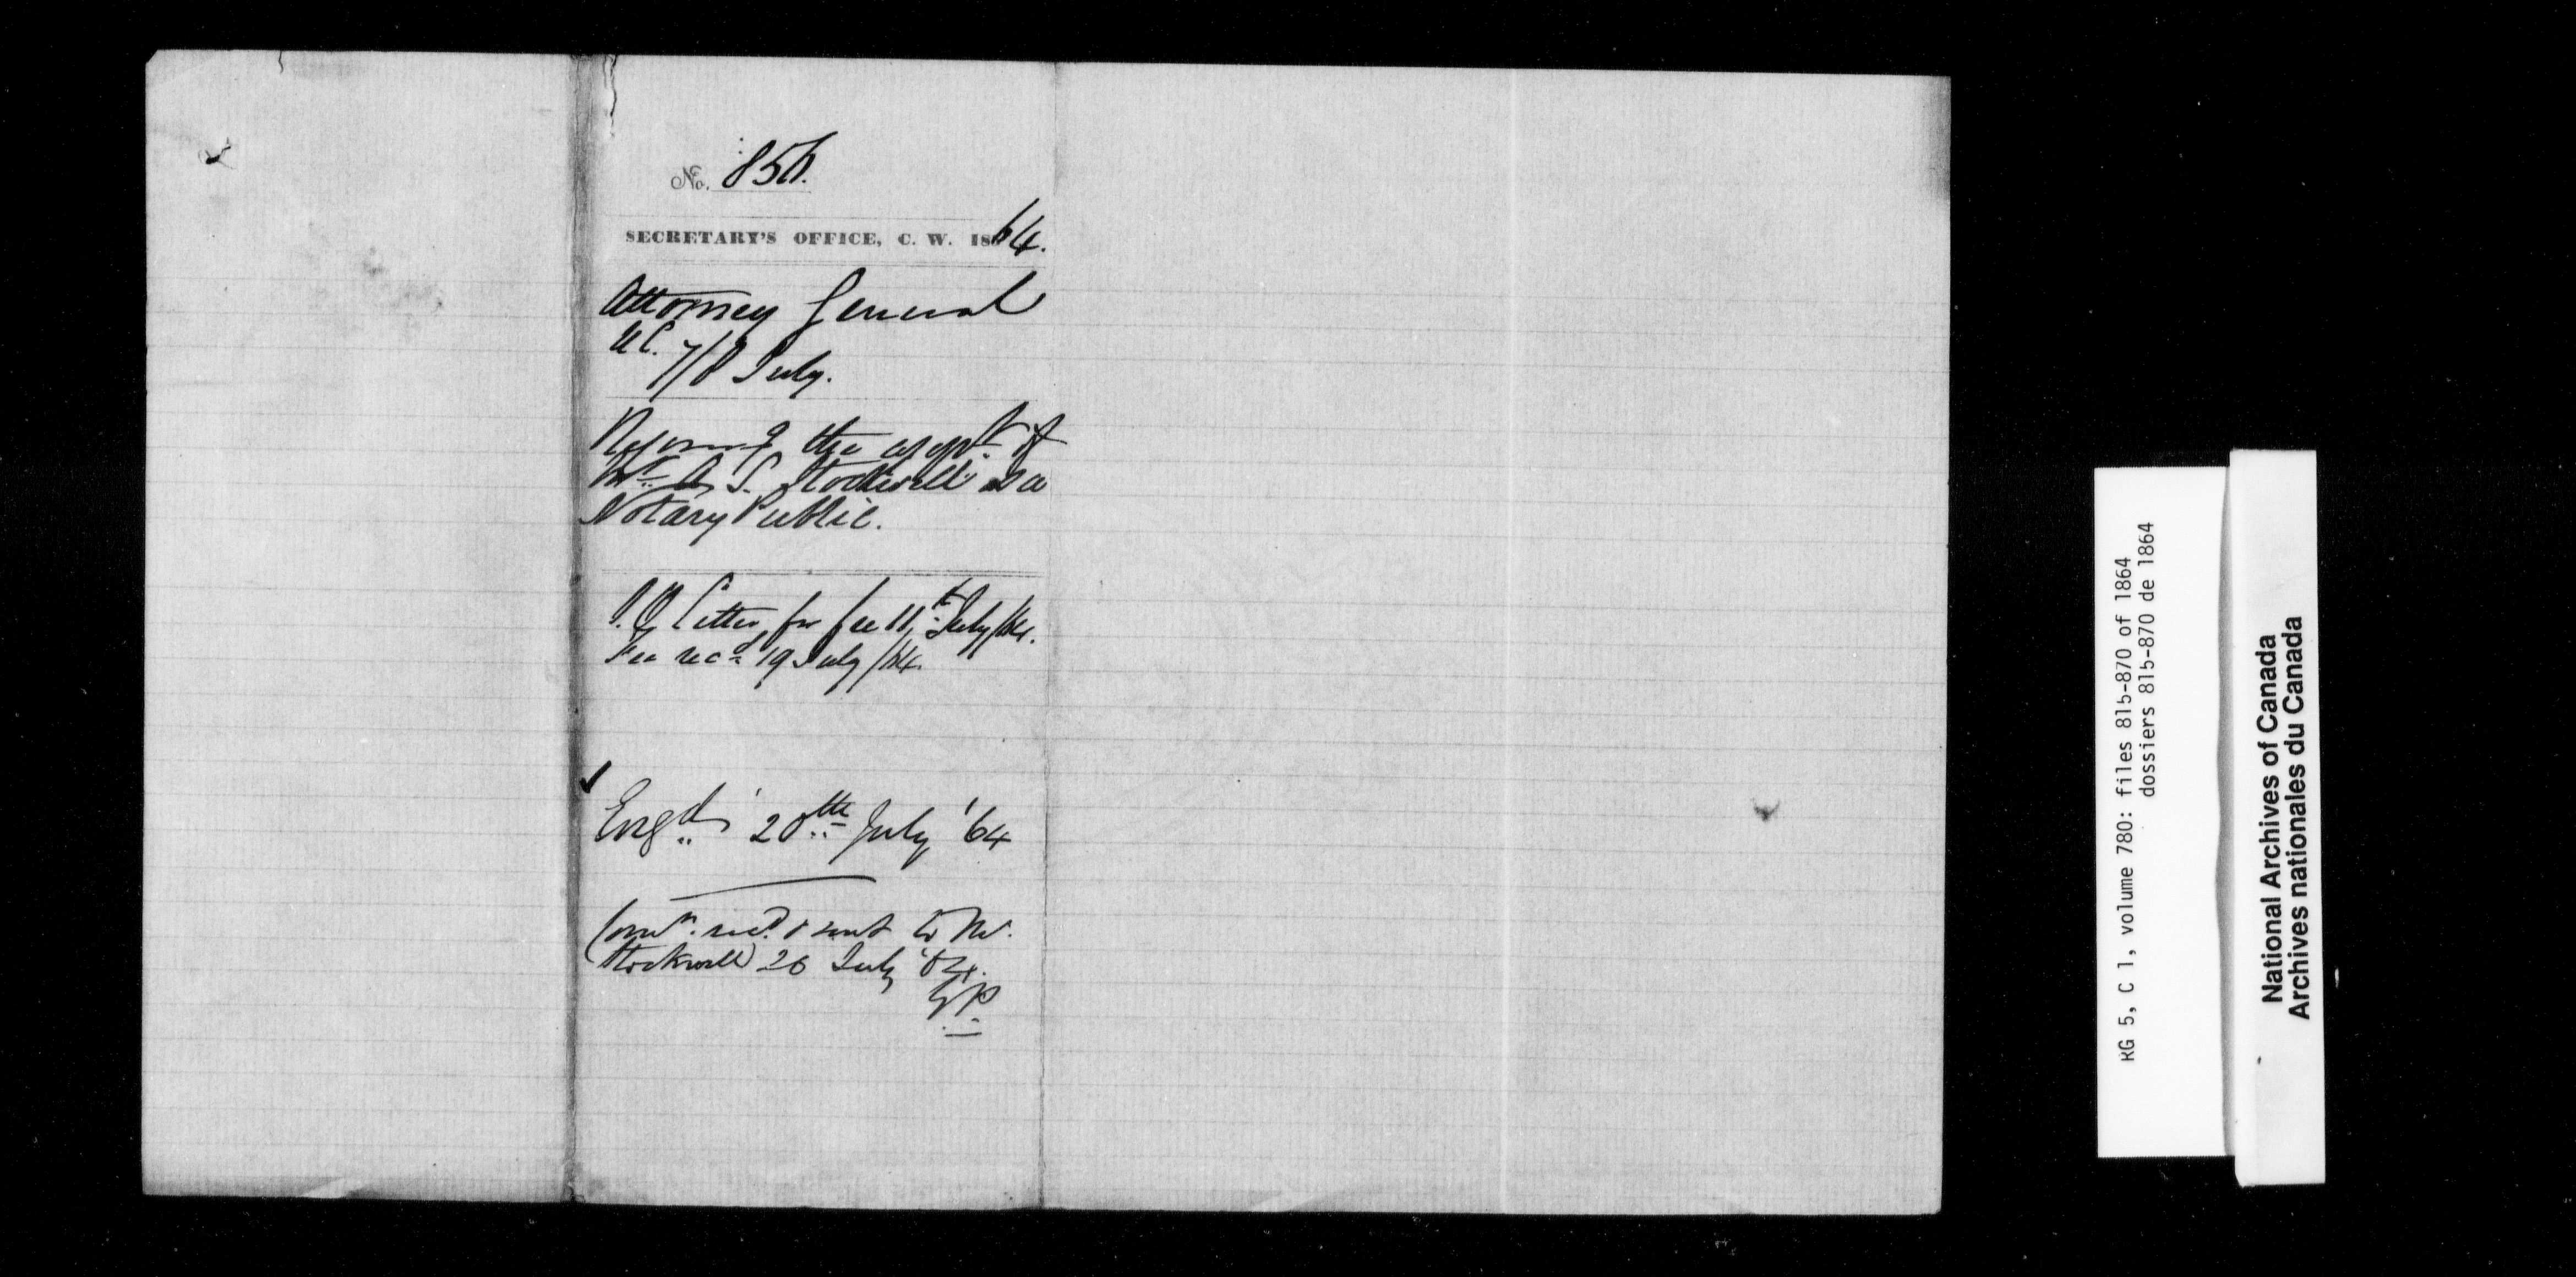 No. 856.
SECRETARY'S OFFICE, C. W. 1864.
Attorney General
U.C. 7/8 July.
the appt. of
Mr. A. S. Stockwell as a
Notary Public.
Letter for fee 11th July/64.
Fee recd. 19 July/64.
Engd. 20th July '64
Comn. recd. & sent to Mr.
Stockwell 26 July '64.
GP.
RG 5, C 1, volume 780: files 815-870 of 1864
dossiers 815-870 de 1864
National Archives of Canada
Archives nationales du Canada